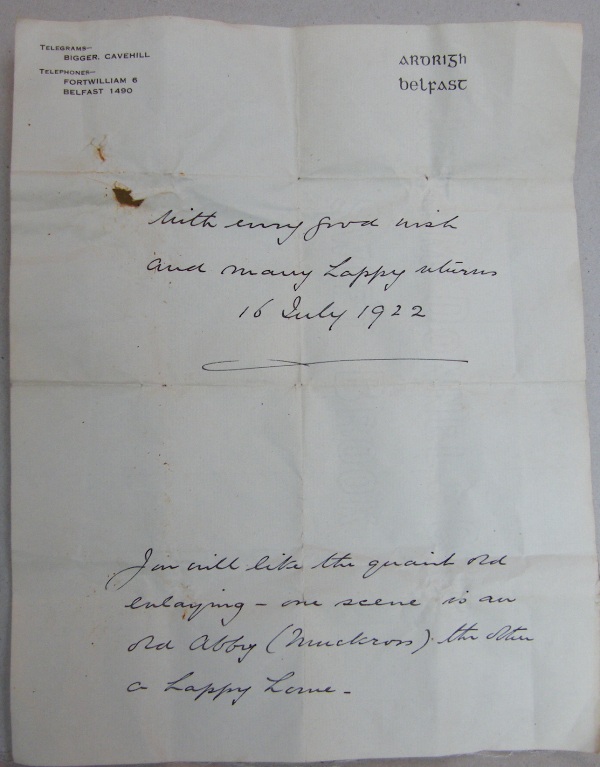 TELEGRAMS—
BIGGER, CAVEHILL
TELEPHONES—
FORTWILLIAM 6
BELFAST 1490
ARDRIGH
BELFAST
With every good wish
and many happy returns
16 July 1922
You will like the quaint old
enlaying - one scene is an
old Abby (Muckross) the other
a happy home -